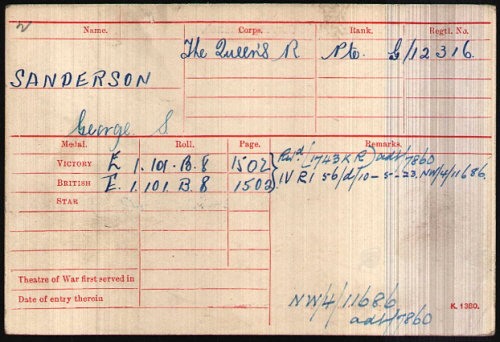 Name. Corps. Rank. Regtl. No.
The Queen's R Pte. G/12316.
SANDERSON
George. S
Medal. Roll. Page. Remarks.
VICTORY E 1.101.B.8 1502 (1743 K R) adt/7860
BRITISH E. 1.101 B.8 1502 IV R/ 56/d/10-5-23. NW/4/11686.
STAR
Theatre of War first served in
Date of entry therein
NW/4/11686
adt/7860
K. 1380.